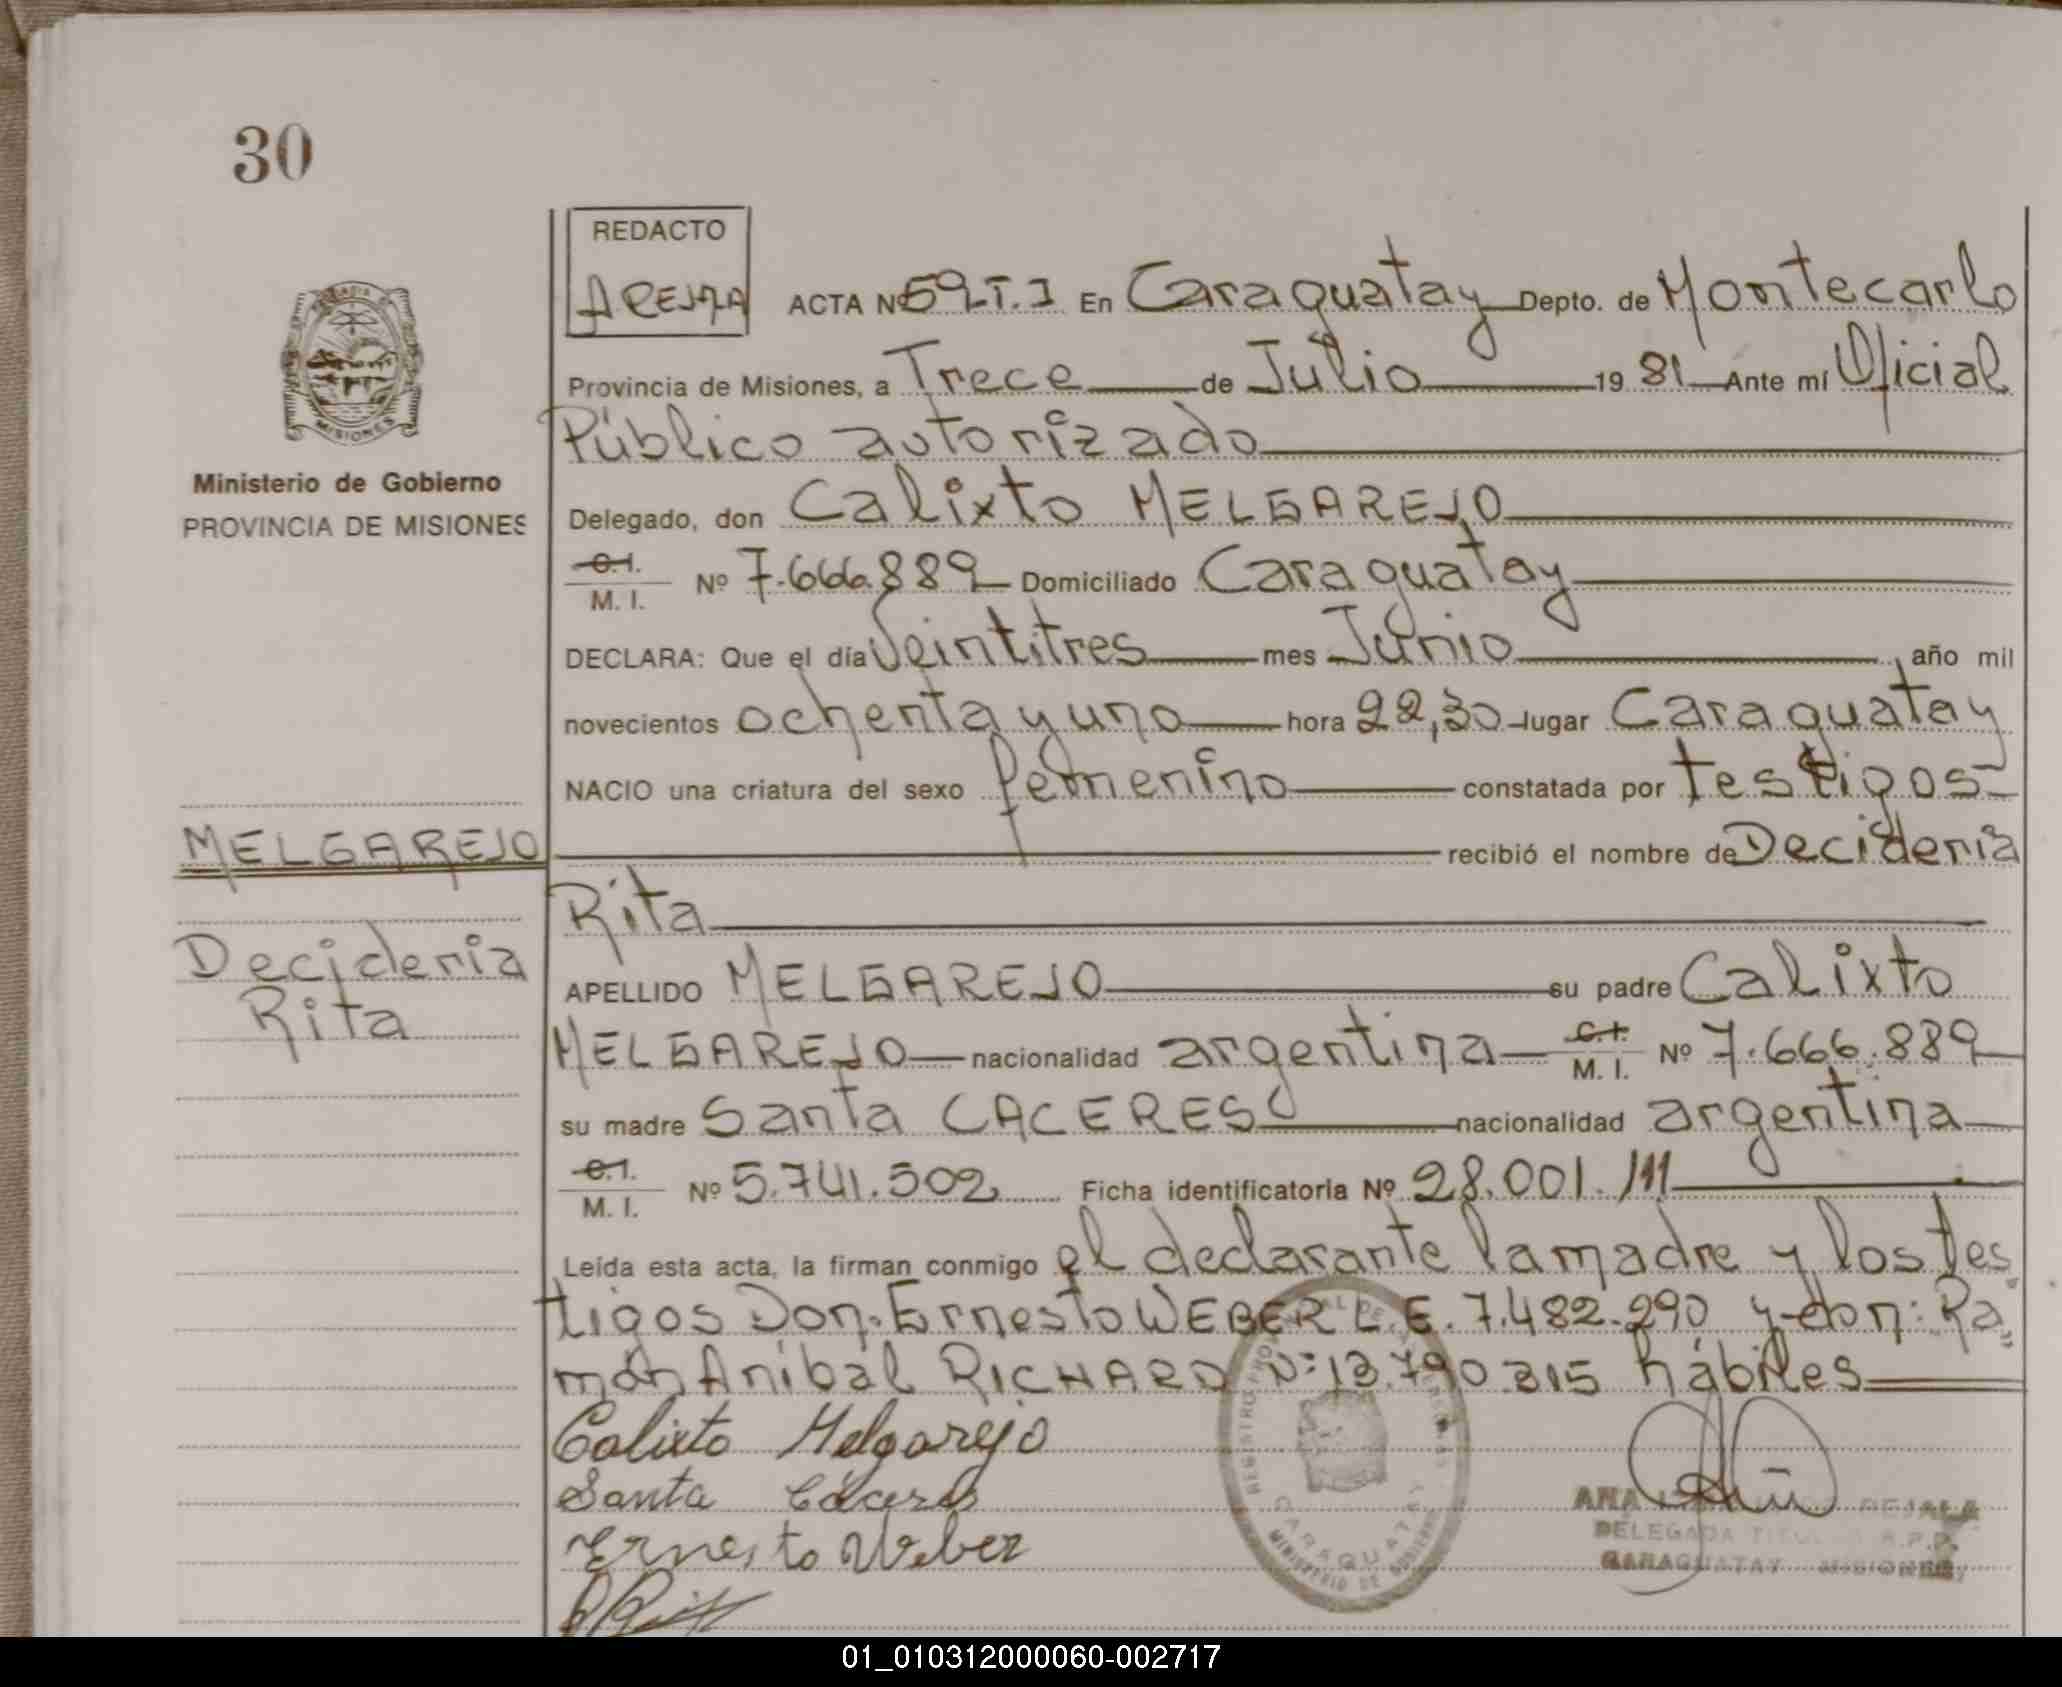 30
REDACTO
AREJMA
ACTA Nº 59.T.I En Caraguatay Depto. de Montecarlo
Provincia de Misiones, a Trece de Julio 19 81 Ante mí Oficial
Público autorizado
Delegado, don Calixto MELGAREJO
C.I. M. I. Nº 7.666.889 Domiciliado Caraguatay
DECLARA: Que el día Veintitres mes Junio, año mil
novecientos ochenta y uno hora 22,30 lugar Caraguatay
NACIO una criatura del sexo femenino constatada por testigos
recibió el nombre de Decideria
Rita
APELLIDO MELGAREJO su padre Calixto
MELGAREJO nacionalidad argentina C.I. M. I. Nº 7.666.889
su madre Santa CACERES nacionalidad argentina
C.I. M. I. Nº 5.741.502 Ficha identificatoria Nº 28.001.///
Leída esta acta, la firman conmigo el declarante la madre y los tes
tigos Don. Ernesto WEBER L.E. 7.482.290 y don: Ra
món Anibal RICHARD Nº: 13.790.315 hábiles
Calixto Melgarejo
Santa Cáceres
Ernesto Weber
MISIONES
Ministerio de Gobierno
PROVINCIA DE MISIONES
MELGAREJO
Decideria
Rita
REGISTRO PROVINCIAL DE LAS PERSONAS
CARAGUATAY
MINISTERIO DE GOBIERNO
ANA
DELEGADA TITULAR R.P.P.
CARAGUATAY MISIONES
01_010312000060-002717